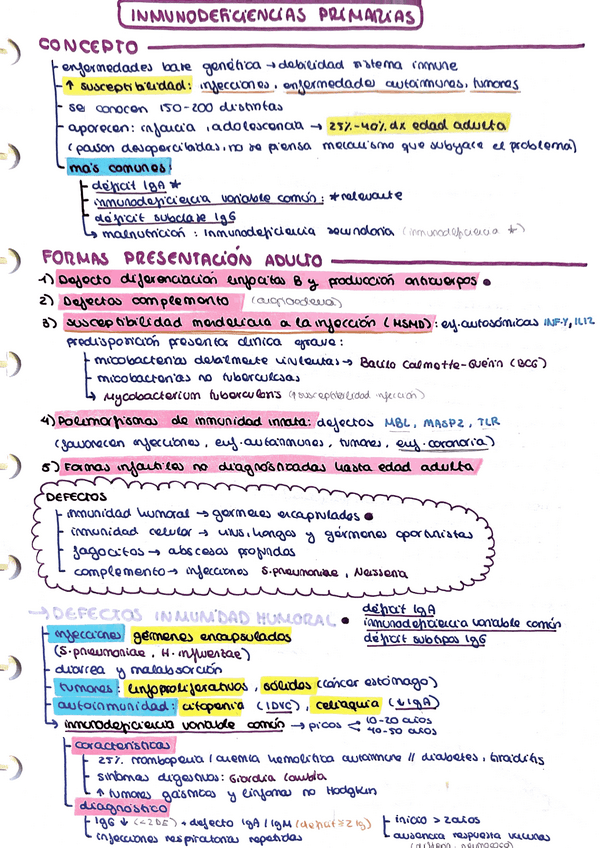 INMUNODEFICIENCIAS PRIMARIAS
CONCEPTO
enfermedades base genética → debilidad sistema inmune
↑ susceptibilidad: infecciones, enfermedades autoinmunes, tumores
se conocen 150-200 distintas
aparecen: infancia, adolescencia → 25%-40% dx edad adulta
(pasan desapercibidas, no se piensa mecanismo que subyace el problema)
más comunes:
déficit IgA *
inmunodeficiencia variable común: *relevante
déficit subclase IgG
↳ malnutrición: inmunodeficiencia secundaria (inmunodeficiencia *)
FORMAS PRESENTACIÓN ADULTO
1) Defecto diferenciación linfocitos B y producción anticuerpos •
2) Defectos complemento (angioedema)
3) Susceptibilidad mendeliana a la infección (MSMD): enf. autosómicas INF-γ, IL12
predisposición presentar clínica grave:
micobacterias debilmente virulentas → Bacilo Calmette-Guérin (BCG)
micobacterias no tuberculosas
↳ Mycobacterium tuberculosis (↑susceptibilidad infección)
4) Polimorfismos de inmunidad innata: defectos MBL, MASP2, TLR
(favorecen infecciones, enf. autoinmunes, tumores, enf. coronaria)
5) Formas infantiles no diagnosticadas hasta edad adulta
DEFECTOS
inmunidad humoral → germenes encapsulados •
inmunidad celular → virus, hongos y gérmenes oportunistas
fagocitos → abscesos profundos
complemento → infecciones S.pneumoniae, Neisseria
→ DEFECTOS INMUNIDAD HUMORAL •
déficit IgA
inmunodeficiencia variable común
déficit subtipos IgG
infecciones gérmenes encapsulados
(S.pneumoniae, H. influenzae)
diarrea y malabsorción
tumores: linfoproliferativos, sólidos (cáncer estómago)
autoinmunidad: citopenia (IDVC), celiaquía (↓IgA)
↳ inmunodeficiencia variable común → picos < 10-20 años
40-50 años
características
25% trombopenia / anemia hemolítica autoinmune // diabetes, tiroiditis
síntomas digestivos: Giardia lamblia
↑ tumores gástricos y linfomas no Hodgkin
diagnóstico
IgG ↓ (<2DE) + defecto IgA / IgM
infecciones respiratorias repetidas
inicio > 2años
ausencia respuesta vacunas